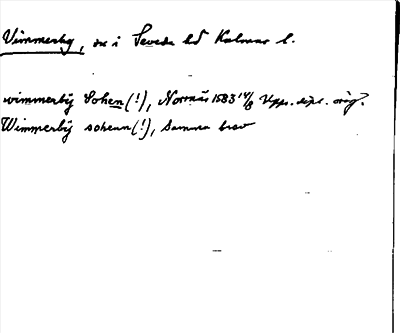 Vimmerby, sn i Sevede hd Kalmar l.
wimmerbÿ Sohen (!), Norrnäs 1583 14/8 Upps. dipl. orig.
Wimmerbÿ sohenn (!), samma brev